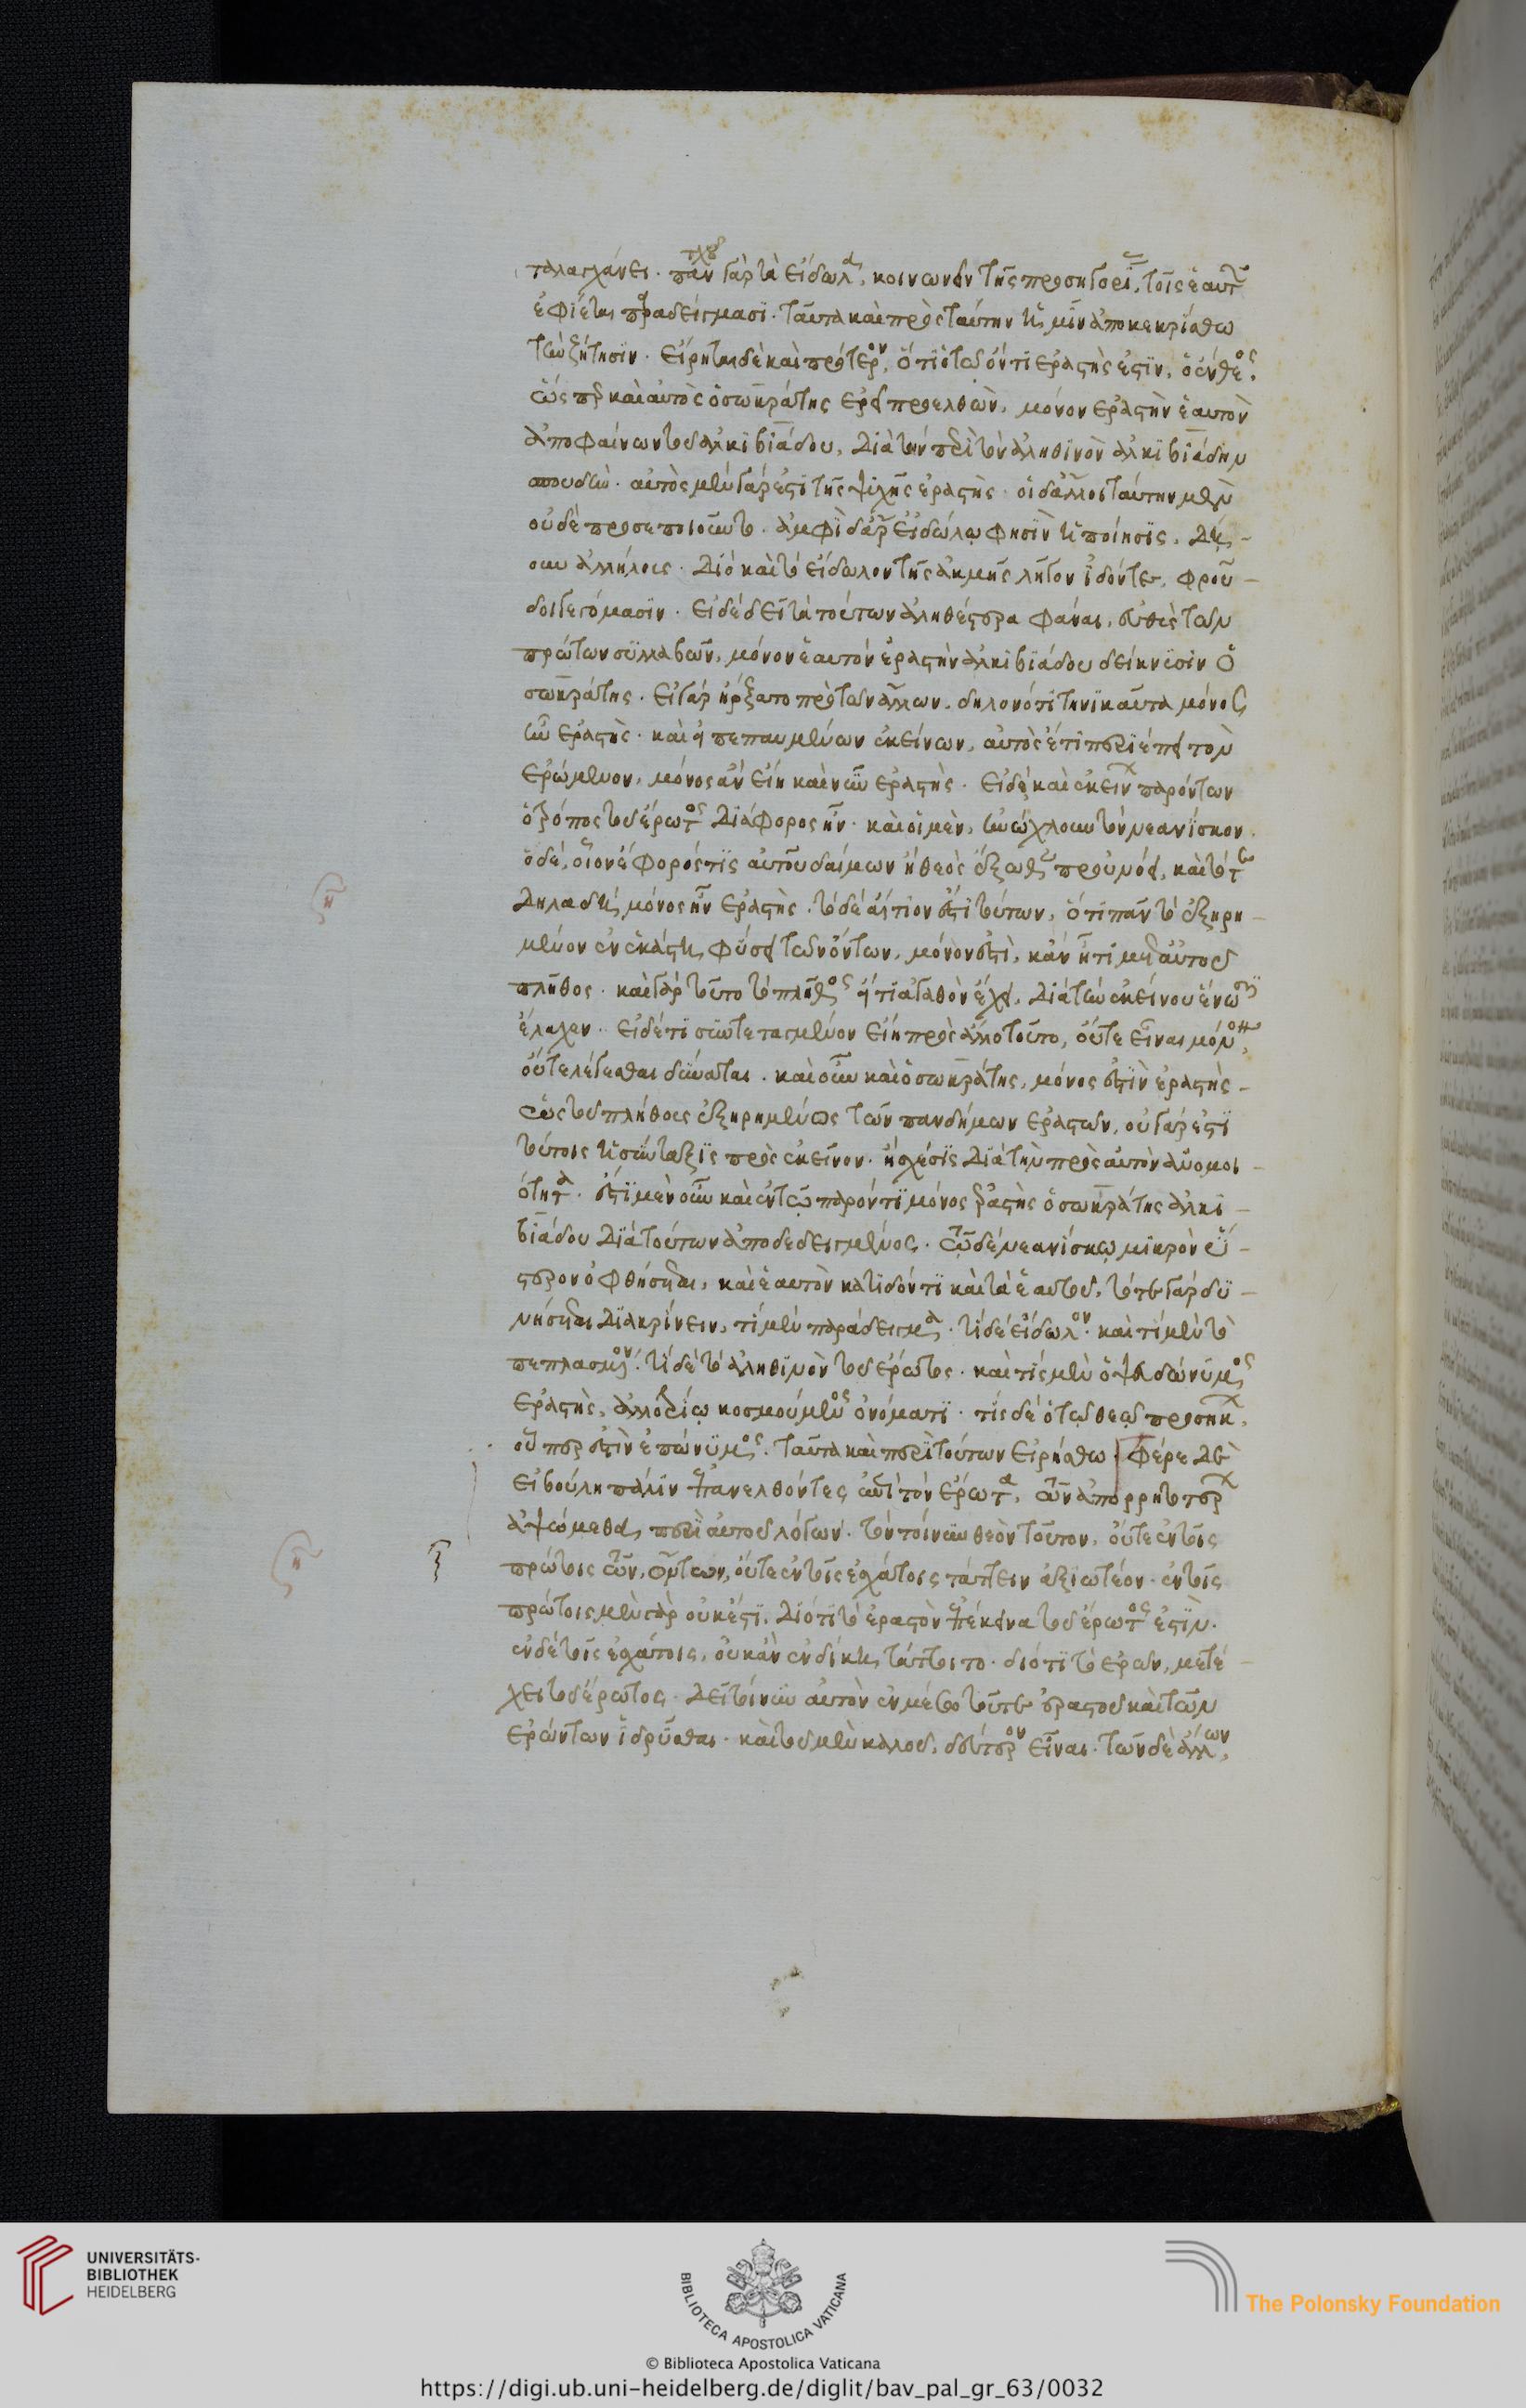 ταλαγχάνει. πᾶν γὰρ τὰ εἴδωλα, κοινωνεῖν τῆς προσηγορίας τοῖς ἑαυτ
ἐφίεται παραδείγμασι. ταῦτα καὶ πρὸς ταύτην ἡμῖν ἀποκεκρίσθω
τὴν ζήτησϊν. εἴρηται δὲ καὶ πρότερον, ὅτϊ ὁ τῷ ὄντι ἐραστὴς ἐστϊν, ὁ ἔνθεος.
ὡς καὶ αὐτὸς ὁ σωκράτης ἐρεῖ προελθὼν, μόνον ἐραστὴν ἑαυτὸν
ἀποφαίνων τοῦ ἀλκιβϊάδου, διὰ τὴν περὶ τὸν ἀληθϊνὸν ἀλκϊβϊάδην
σπουδήν. αὐτὸς μὲν γάρ ἐστι τῆς ψυχῆς ἐραστής. οἱ δ' ἄλλοι ταύτην μὲν
οὐδὲ προσεποιοῦντο. ἀμφὶ δ' ἄρ' εἰδώλῳ φησὶν ἡ ποίησϊς, δῄ-
ουν ἀλλήλους. διὸ καὶ τὸ εἴδωλον τῆς ἀκμῆς λῆγον ἰδόντες, φροῦ-
δοι γεγόνασϊν. εἰ δὲ δεῖ τὰ τούτων ἀληθέστερα φάναι, εὐθὺς τῶν
πρώτων συλλαβῶν, μόνον ἑαυτὸν ἐραστὴν ἀλκϊβϊάδου δείκνυσϊν ὁ
σωκράτης. εἰ γὰρ ἤρξατο πρὸ τῶν ἄλλων, δηλονότι τηνϊκαῦτα μόνος
ἦν ἐραστής. καὶ εἰ πεπαυμένων ἐκείνων, αὐτὸς ἔτι περϊέπει τὸν
ἐρώμενον, μόνος ἂν εἴη καὶ νῦν ἐραστής. εἰ δὲ καὶ ἐκείνων παρόντων
ὁ τρόπος τοῦ ἔρωτος διάφορος ἦν. καὶ οἱ μὲν, ἠνώχλουν τὸν νεανίσκον.
ὁ δὲ, οἷον ἔφορός τϊς αὐτοῦ δαίμων ἢ θεὸς ἔξωθεν προὐνόει, καὶ τότε
δηλαδὴ μόνος ἦν ἐραστής. τὸ δὲ αἴτιον ἐστϊ τούτων, ὅτι πᾶν τὸ ἐξηρη-
μένον ἐν ἑκάστῃ φύσει τῶν ὄντων, μόνον ἐστὶ, κἂν ᾖ τι μετ' αὐτοῦ
πλῆθος. καὶ γὰρ τοῦτο τὸ πλῆθος εἴ τι ἀγαθὸν ἔχει, διὰ τὴν ἐκείνου ἕνωσϊν
ἔλαχεν. εἰ δέ τϊ συντεταγμένον εἴη πρὸς ἄλλο τοῦτο, οὔτε εἶναι μόνον,
οὔτε λέγεσθαι δύναται. καὶ οὖν καὶ ὁ σωκράτης, μόνος ἐστὶν ἐραστὴς
ὡς τοῦ πλήθους ἐξηρημένος τῶν πανδήμων ἐραστῶν, οὐ γάρ ἐστϊ
τούτοις ἡ σύνταξϊς πρὸς ἐκεῖνον. ἡ σχέσϊς διὰ τὴν πρὸς αὐτὸν ἀνομοι-
ότητα. ἔστϊ μὲν οὖν καὶ ἐν τῷ παρόντϊ μόνος ἐραστὴς ὁ σωκράτης ἀλκι-
βϊάδου διὰ τούτων ἀποδεδειγμένος. τῷ δὲ νεανίσκῳ μϊκρὸν ὕ-
στερον ὀφθήσεται, καὶ ἑαυτὸν κατϊδόντϊ καὶ τὰ ἑαυτοῦ, τότε γὰρ δυ-
νήσεται διακρίνειν, τί μὲν παράδειγμα. τί δὲ εἴδωλον. καὶ τί μὲν τὸ
πεπλασμένον. τί δὲ τὸ ἀληθϊνὸν τοῦ ἔρωτος. καὶ τίς μὲν ὁ ψευδώνυμος
ἐραστὴς, ἀλλοτρίῳ κοσμούμενος ὀνόματι. τίς δὲ ὁ τῷ θεῷ προσήκων,
οὗπερ ἐστὶν ἐπώνυμος. ταῦτα καὶ περὶ τούτων εἰρήσθω. Φέρε δὲ
εἰ βούλει πάλϊν ἐπανελθόντες ἐπὶ τὸν ἔρωτα, τῶν ἀπορρητοτέρων
ἁψώμεθα περὶ αὐτοῦ λόγων. τὸν τοίνυν θεὸν τοῦτον, οὔτε ἐν τοῖς
πρώτοις τῶν ὄντων, οὔτε ἐν τοῖς ἐσχάτοις τάττειν ἀξιωτέον. ἐν τοῖς
πρώτοις μὲν γὰρ οὐκ ἔστϊ. διότϊ τὸ ἐραστὸν ἐπέκεινα τοῦ ἔρωτος ἐστϊν.
ἐν δὲ τοῖς ἐσχάτοις, οὐκ ἂν ἐν δίκῃ τάττοιτο. διότϊ τὸ ἐρῶν, μετέ-
χει τοῦ ἔρωτος. δεῖ τοίνυν αὐτὸν ἐν μέσῳ τοῦ τε ἐραστοῦ καὶ τῶν
ἐρώντων ἱδρῦσθαι. καὶ τοῦ μὲν καλοῦ, δεύτερον εἶναι. τῶν δὲ ἄλλων,
UNIVERSITÄTS-
BIBLIOTHEK
HEIDELBERG
BIBLIOTECA APOSTOLICA VATICANA
The Polonsky Foundation
© Biblioteca Apostolica Vaticana
https://digi.ub.uni-heidelberg.de/diglit/bav_pal_gr_63/0032